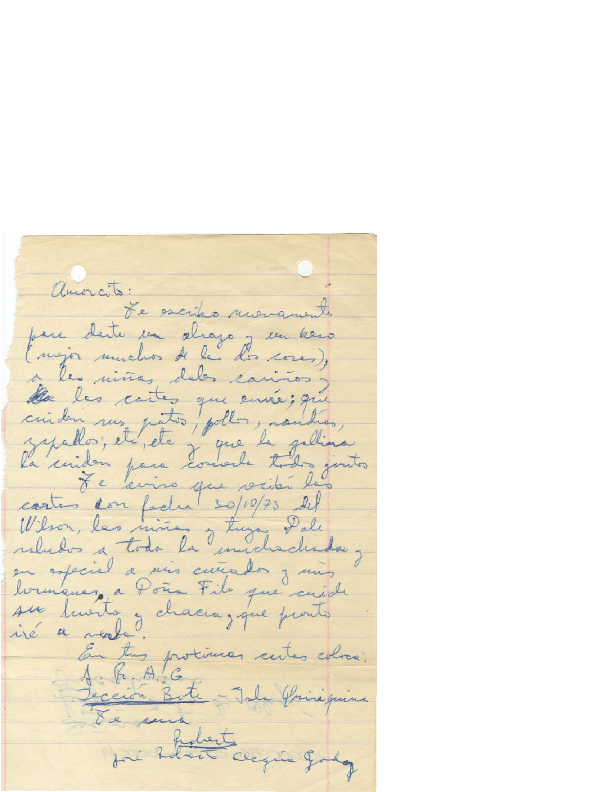 Amorcito:
Te escribo nuevamente
para darte un abrazo y un beso
(mejor muchos de las dos cosas),
a las niñas dales cariños y
las cartas que envié; que
cuiden sus patos, pollos,
zapallos, etc, etc y que la gallina
la cuiden para comerla todos juntos
Te aviso que recibí las
cartas con fecha 30/10/73 del
Wilson, las niñas y tuya. Dale
saludos a toda la muchachada y
en especial a mis cuñados y mis
hermanas, a Doña Filo que cuide
su huerto y chacra, que pronto
iré a verla.
En tus próximas cartas coloca:
J. R. A. G.
Sección Bote - Isla Quiriquina
Te ama
Roberto
José Roberto